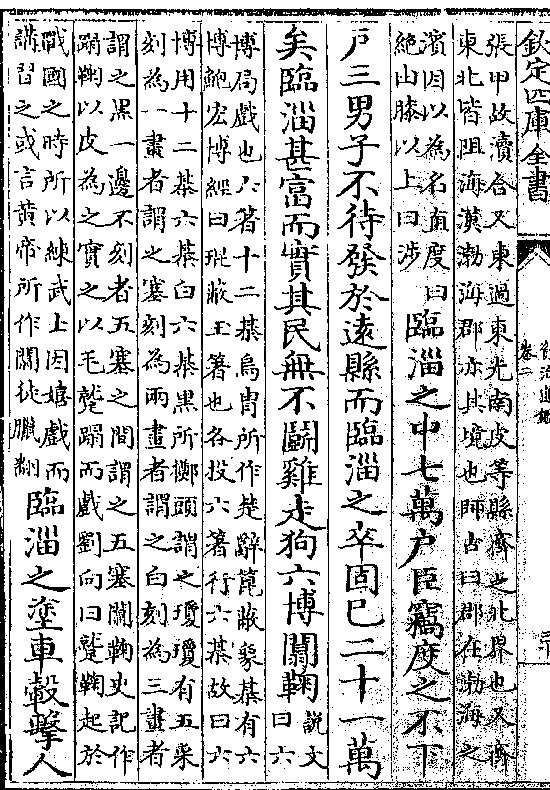 欽定四庫全書
資治通鑑
卷二
張甲故瀆合又東過東光南皮等縣齊之北界也又齊
東北皆阻海漢渤海郡亦其境也師古曰郡在渤海之
濱因以為名直度曰
絶由膝以上曰涉
臨淄之中七萬户臣竊度之不下
户三男子不待發於遠縣而臨淄之卒固已二十一萬
矣臨淄甚富而實其民無不鬭雞走狗六博闒鞠
說文
曰六
博局戲也六箸十二棊烏胄所作楚辭箟蔽象棊有六
博鮑宏博經曰琨蔽玉箸也各投六箸行六棊故曰六
博用十二棊六棊白六棊黒所擲頭謂之瓊瓊有五采
刻為一畫者謂之塞刻為兩畫者謂之白刻為三畫者
謂之黒一邊不刻者五塞之間謂之五塞闒鞠史記作
蹋鞠以皮為之實之以毛蹵蹋而戲劉向曰蹵鞠起於
戰國之時所以練武士因嬉戲而
講習之或言黄帝所作闒徒臘翻
臨淄之塗車轂撃人